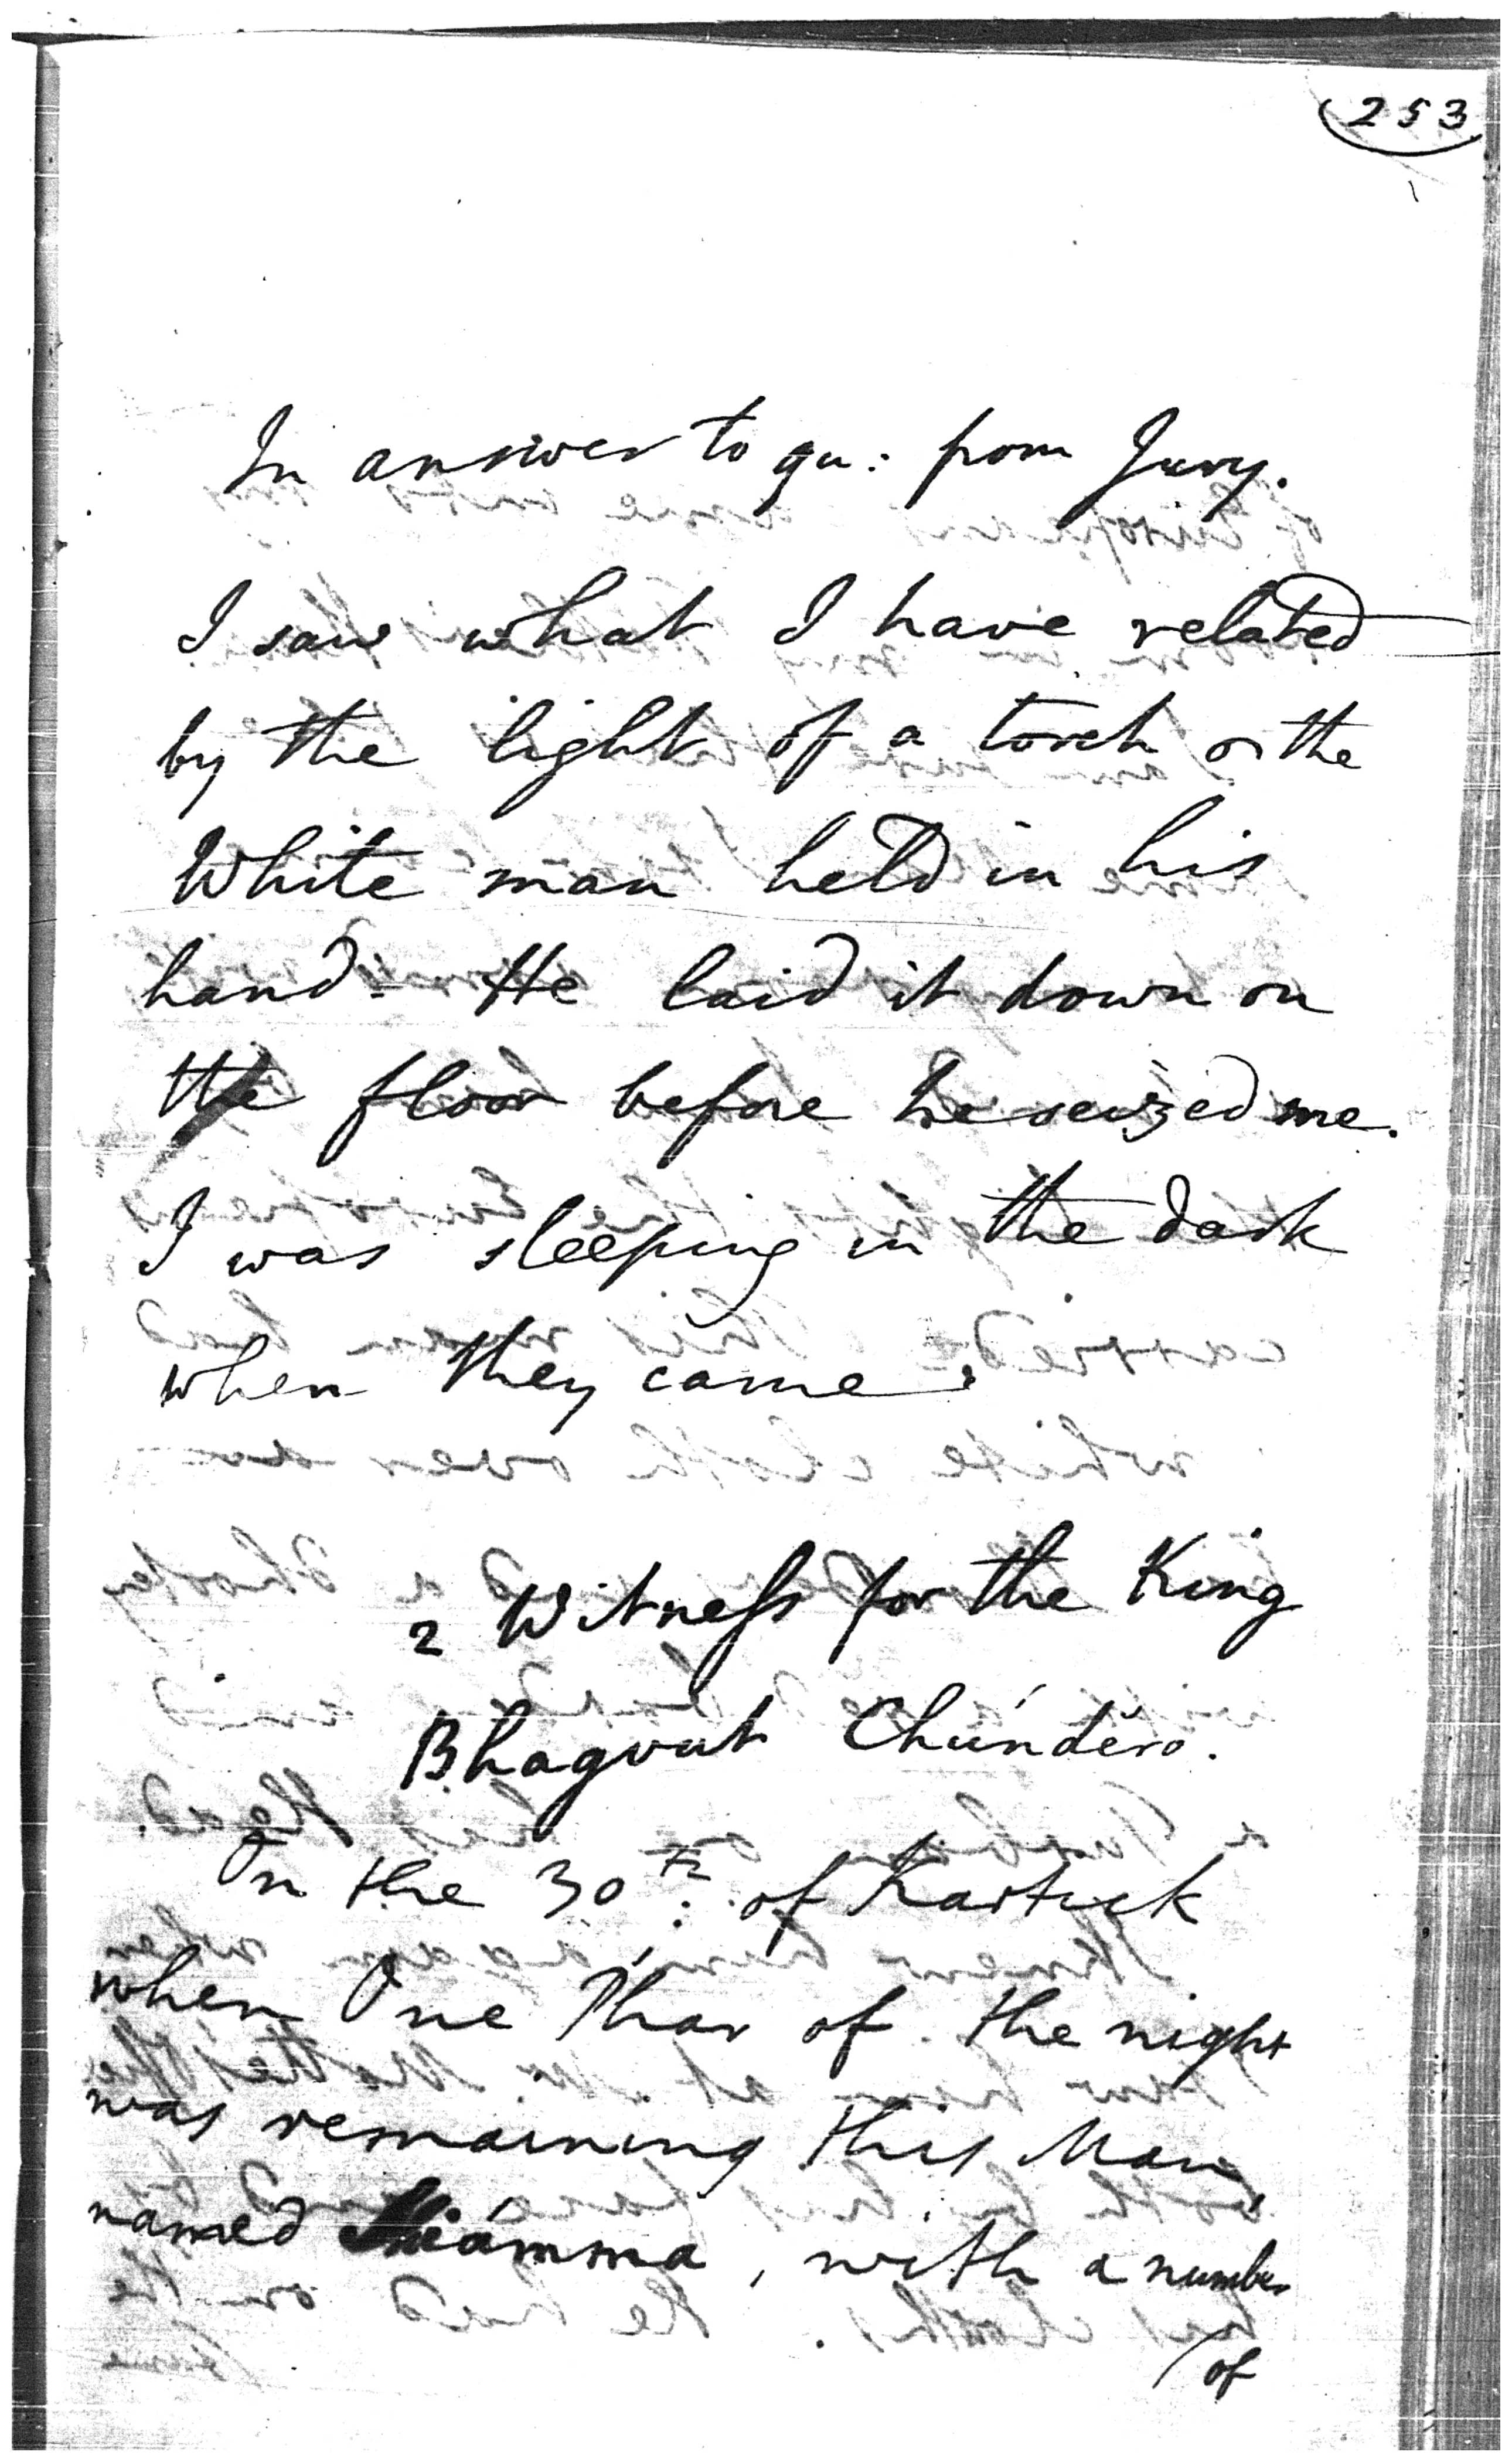 253
In answer to qu: from Jury.
I saw what I have related
by the light of a torch the
White man held in his
hand - He laid it down on
the floor before he seized me.
I was sleeping in the dark
when they came.
2 Witness for the King
Bhagvut Chúndéro.
On the 30th: of Kartick
when One Phar of the night
was remaining this Man,
named , with a number
of